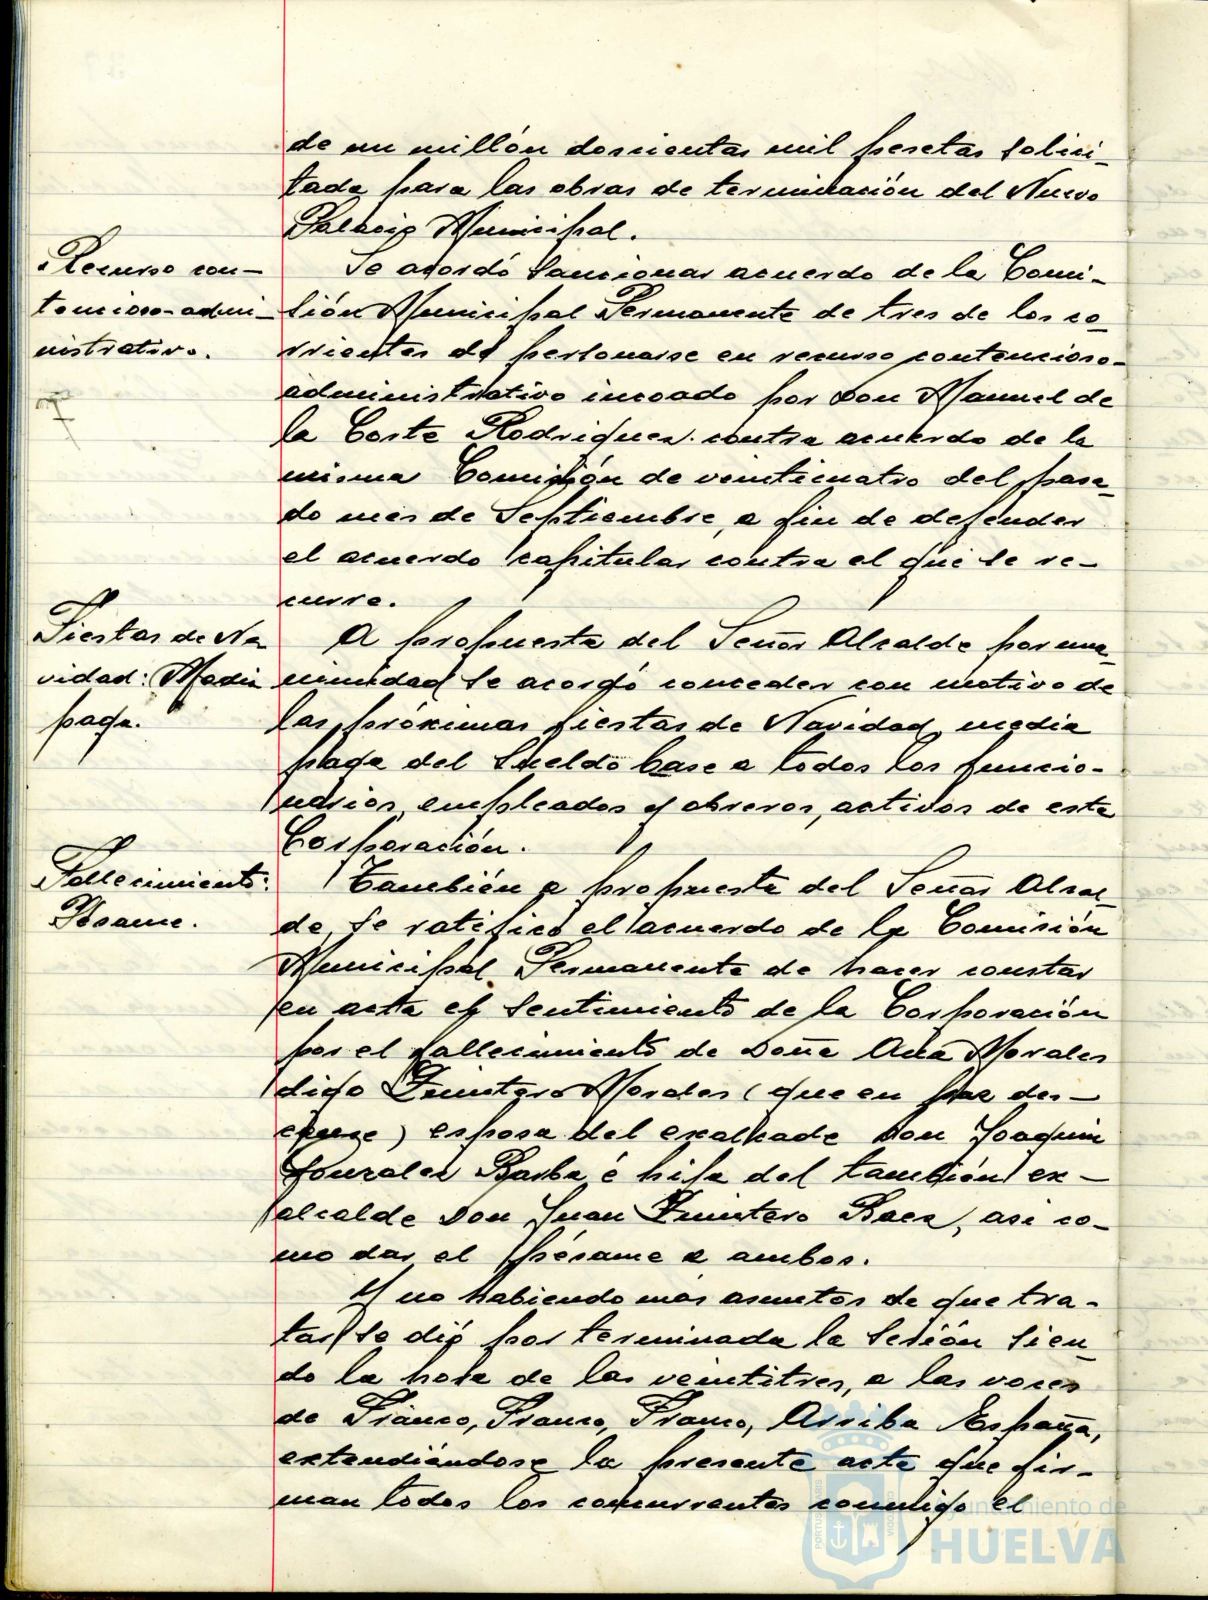 de un millón doscientas mil pesetas solici-
tada para las obras de terminación del Nuevo
Palacio Municipal.
Recurso con-
tencioso-admi-
nistrativo.
Se acordó sancionar acuerdo de la Comi-
sión Municipal Permanente de tres de los co-
rrientes de personarse en recurso contencioso-
administrativo incoado por Don Manuel de
la Corte Rodriguez contra acuerdo de la
misma Comisión de veinticuatro del pasa-
do mes de Septiembre, a fin de defender
el acuerdo capitular contra el que se re-
curre.
Fiestas de Na-
vidad: Media
paga.
A propuesta del Señor Alcalde por una-
nimidad se acordó conceder con motivo de
las próximas fiestas de Navidad, media
paga del sueldo base a todos los funcio-
narios, empleados y obreros, activos de esta
Corporación.
Fallecimiento:
Pésame.
También a propuesta del Señor Alcal-
de, se ratificó el acuerdo de la Comisión
Municipal Permanente de hacer constar
en acta el sentimiento de la Corporación
por el fallecimiento de Doña Ana Morales
digo Quintero Morales (que en paz des-
canse) esposa del exalcalde Don Joaquin
Gonzalez Barba é hija del también ex-
alcalde Don Juan Quintero Baez, asi co-
mo dar el pésame a ambos.
Y no habiendo más asuntos de que tra-
tar se dió por terminada la sesión sien-
do la hora de las veintitres, a las voces
de Franco, Franco, Franco, Arriba España,
extendiéndose la presente acta que fir-
man todos los concurrentes conmigo el
Ayuntamiento de
HUELVA